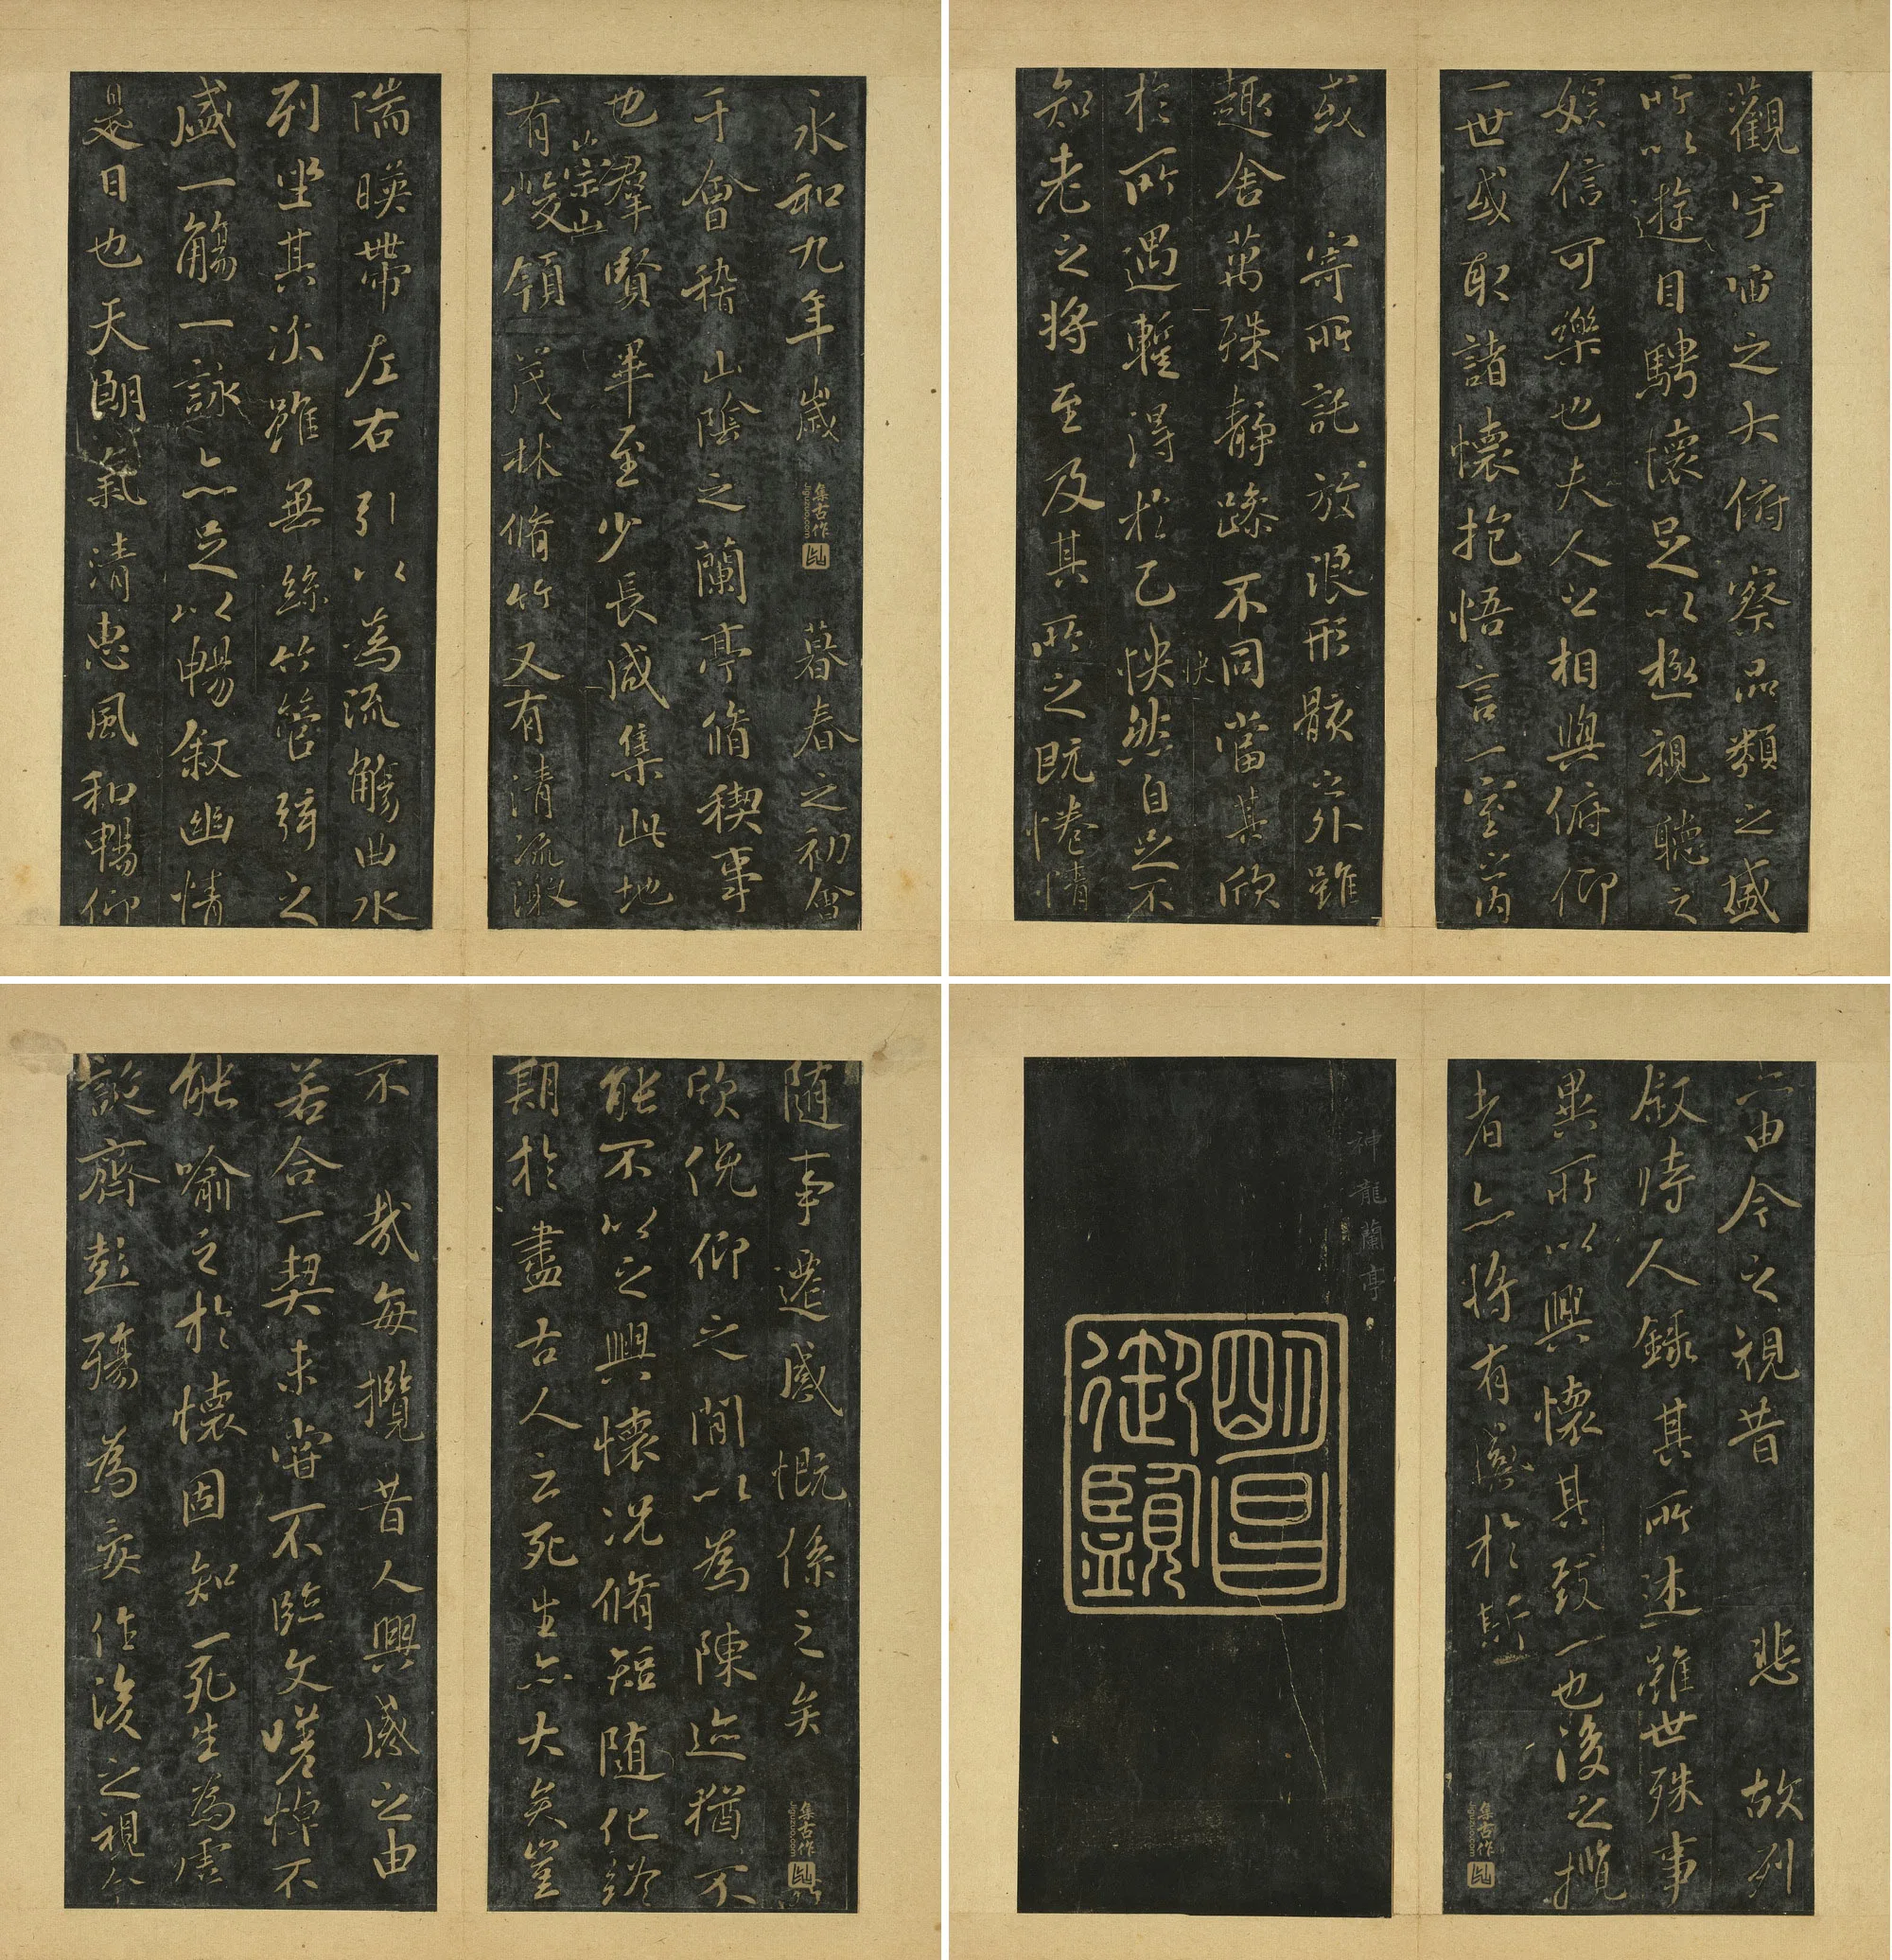 永和九年歲暮春之初會
于會稽山陰之蘭亭脩稧事
也羣賢畢至少長咸集此地
有崇山峻領茂林脩竹又有清流激
湍暎帶左右引以為流觴曲水
列坐其次雖無絲竹管弦之
盛一觴一詠亦足以暢敘幽情
是日也天朗氣清惠風和暢仰
觀宇宙之大俯察品類之盛
所以遊目騁懷足以極視聽之
娛信可樂也夫人之相與俯仰
一世或取諸懷抱悟言一室之內
或寄所託放浪形骸之外雖
趣舍萬殊靜躁不同當其欣
於所遇蹔得於己怏然自足不
快
知老之將至及其所之既惓情
隨事遷感慨係之矣
欣俛仰之閒以為陳迹猶不
能不以之興懷況脩短隨化終
期於盡古人云死生亦大矣豈
不哉每攬昔人興感之由
若合一契未嘗不臨文嗟悼不
能喻之於懷固知一死生為虛
誕齊彭殤為妄作後之視今
亦由今之視昔悲故列
敘時人錄其所述雖世殊事
異所以興懷其致一也後之攬
者亦將有感於斯
神龍蘭亭
明昌
御覽
集古作
jiguzuo.com
集古作
jiguzuo.com
集古作
jiguzuo.com